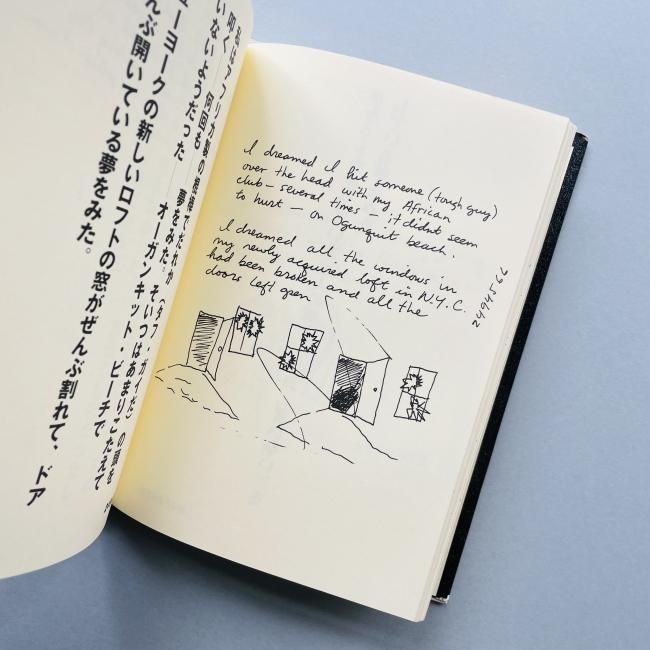 私はアフリカ製の棍棒でだれか（タフ・ガイだ）の頭を
叩く——何回も——夢をみた。そいつはあまりこたえて
いないようだった——オーガンキット・ビーチで
ューヨークの新しいロフトの窓がぜんぶ割れて、ドア
んぶ開いている夢をみた。
I dreamed I hit someone (tough guy)
over the head with my African
club – several times – it didnt seem
to hurt – on Ogunquit beach.
I dreamed all the windows in
my newly acquired loft in N.Y.C.
had been broken and all the
doors left open
2494566